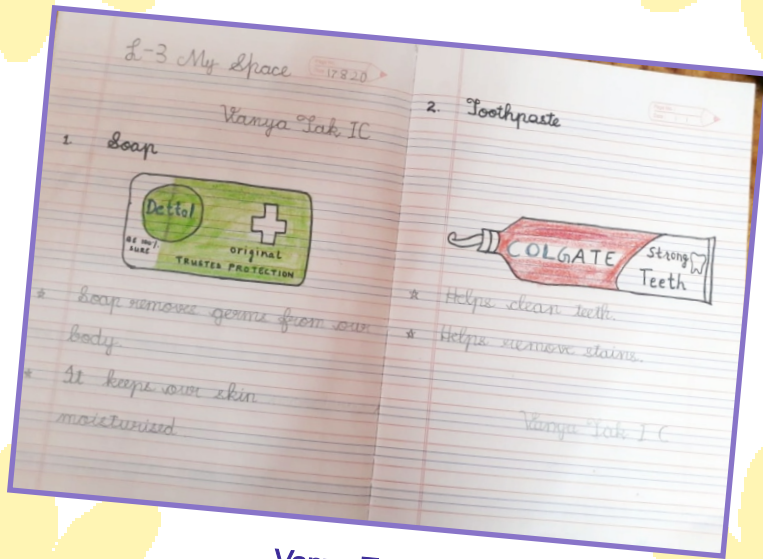 L-3 My Space
17820
Vanya Tak IC
1 Soap
Dettol
BE 100%
SURE
original
TRUSTED PROTECTION
* Soap removes germs from our
body.
* It keeps our skin
moisturized
2. Toothpaste
COLGATE
Strong
Teeth
* Helps clean teeth.
* Helps remove stains.
Vanya Tak I C